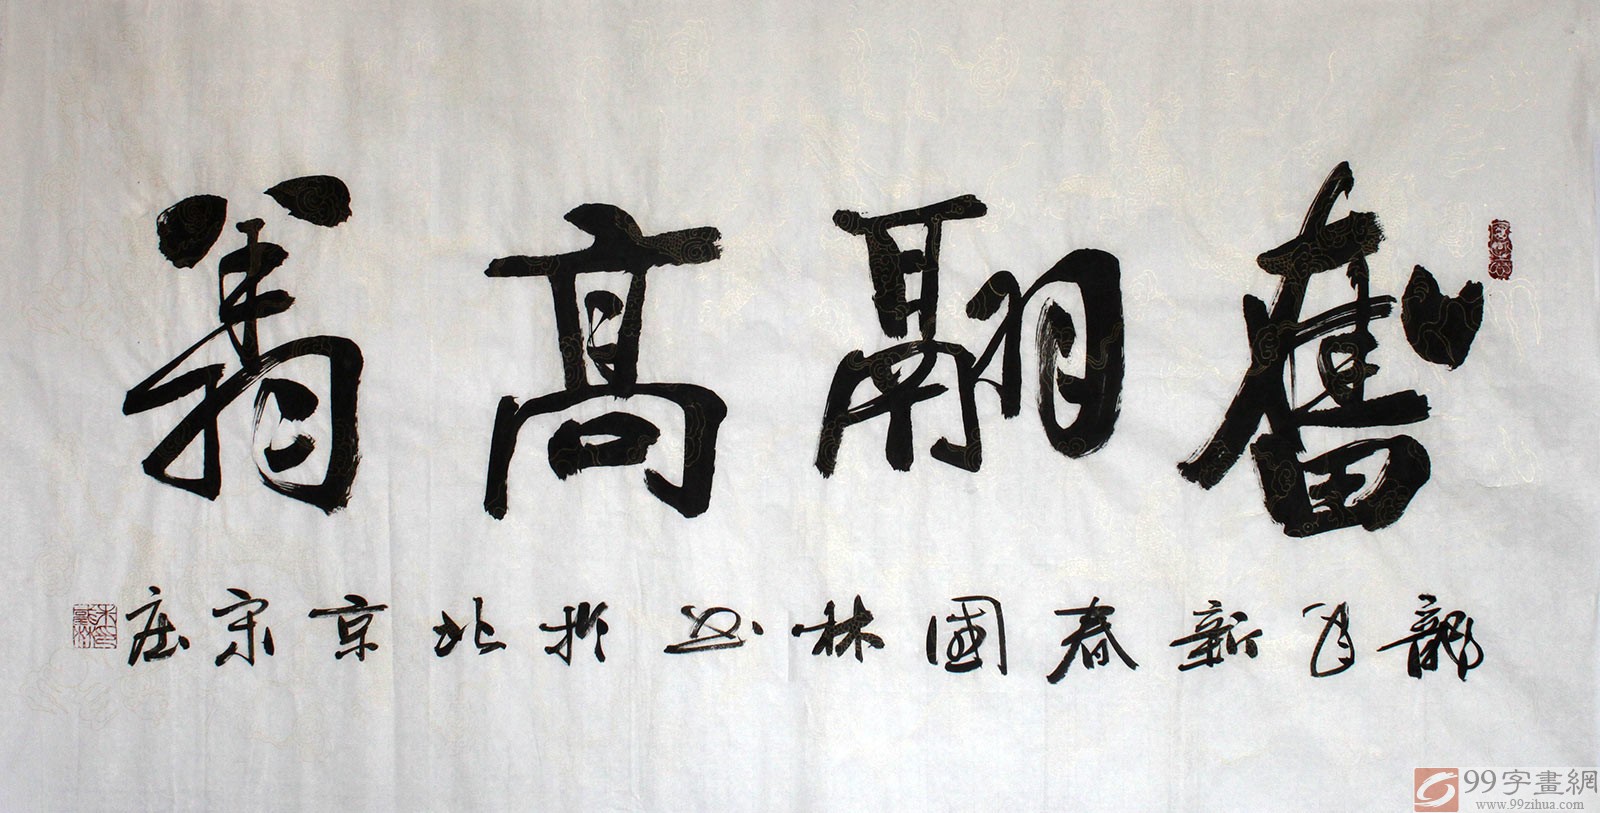 奮翮高翔
龍年新春國林书於北京宋庄
99字畫網
www.99zihua.com